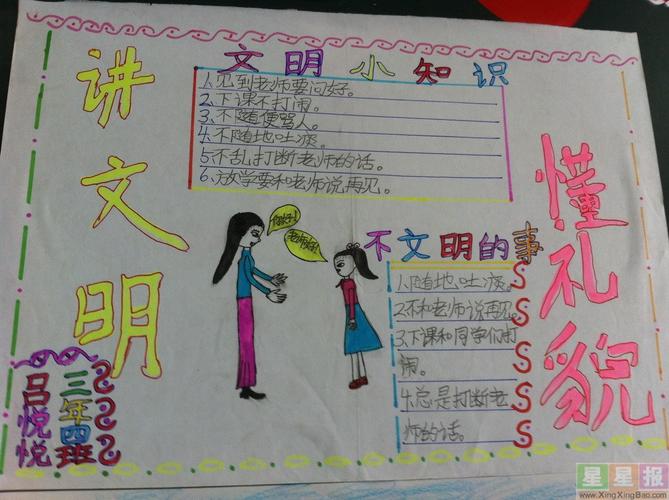 讲文明
文明小知识
1.见到老师要问好。
2.下课不打闹。
3.不随便骂人。
4.不随地吐痰。
5.不乱打断老师的话。
6.放学要和老师说再见。
懂礼貌
你好!
老师好!
不文明的事
1.随地吐痰。
2.不和老师说再见。
3.下课和同学们打
闹。
4.总是打断老
师的话。
三年四班
吕悦悦
星星报
www.XingXingBao.com